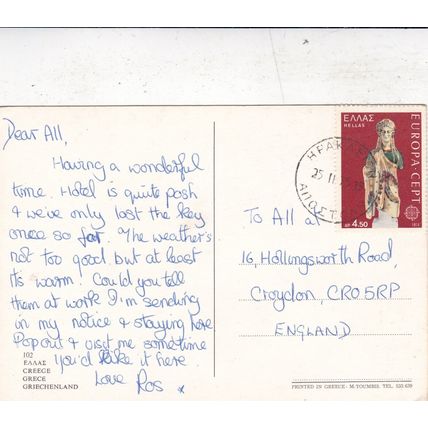 Dear All,
Having a wonderful
time. Hotel is quite posh
& we've only lost the key
once so far. The weather's
not too good but at least
its warm! Could you tell
them at work I'm sending
in my notice & staying here
Pop out & visit me sometime
you'd like it here.
Love Ros x
102
ΕΛΛΑΣ
CREECE
GRECE
GRIECHENLAND
ΕΛΛΑΣ
HELLAS
EUROPA·CEPT
ΔΡ 4.50
ΗΡΑΚΛ
25 11
ΑΠΟΣΤ
To All at
16, Hollingsworth Road,
Croydon, CR0 5RP
ENGLAND
PRINTED IN GREECE - M. TOUMBIS. TEL.